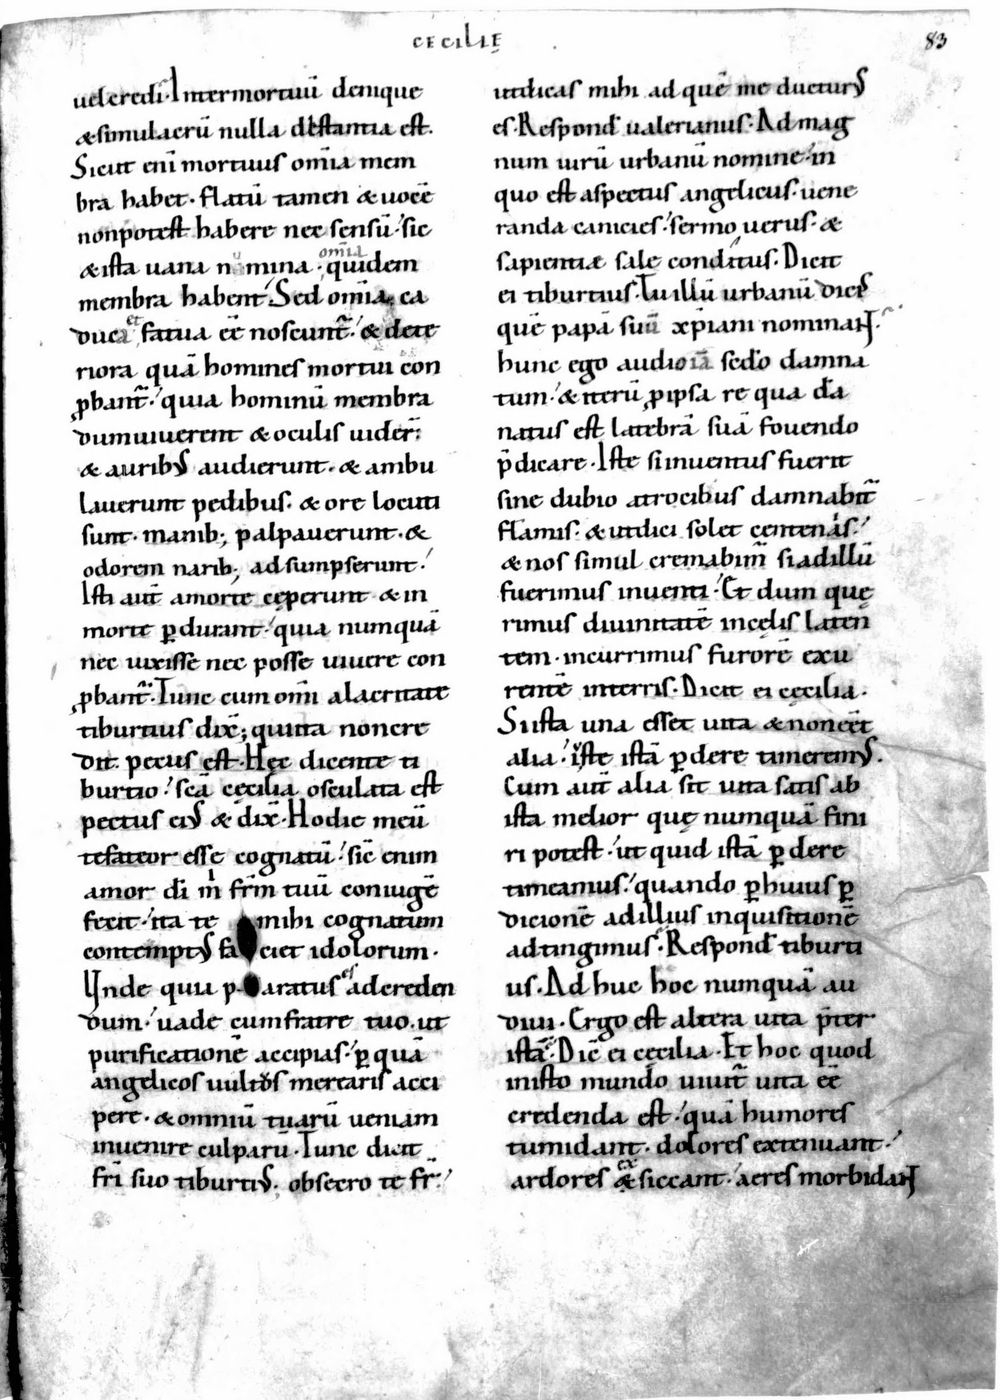 CECILIĘ
83
uel credi· Inter mortuū denique
& simulacrū nulla distantia est.
Sicut eni mortuus omīa mem
bra habet· flatū tamen & uocē
non potest habere nec sensū· sic
& ista uana numina· omīa quidem
membra habent· Sed omīa ca
duca et fatua eē noscunt̄· & dete
riora quā homines mortui con
ꝓbant̄· quia hominū membra
dum uiuerent & oculis uider̄
& aurib⁹ audierunt· & ambu
lauerunt pedibus· & ore locuti
sunt· manib; palpauerunt· &
odorem narib; adsumpserunt·
Isti aut̄ a morte cęperunt & in
morte ꝑdurant· quia numquā
nec uixisse nec posse uiuere con
ꝓbant̄· Tunc cum omī alacritate
tiburtius dix̄; qui ita non cre
dit· pecus est· Hęc dicente ti
burtio· scā cęcilia osculata est
pectus ei⁹ & dix̄· Hodie meū
te fateor esse cognatū· sic̄ enim
amor dī m̄ fr̄m tuū coniugē
fecit· ita te mihi cognatum
contempt⁹ faciet idolorum·
Unde quia paratus es ad creden
dum· uade cum fratre tuo· ut
purificationē accipias· ꝑ quā
angelicos uultos merearis acci
pere· & omniū tuarū ueniam
inuenire culparū· Tunc dicit
frī suo tiburti⁹· obsecro te fr̄·
ut dicas mihi ad quē me ductur⁹
es· Respond̄ ualerianus· Ad mag
num uirū urbanū nomine· in
quo est aspectus angelicus· uene
randa canicies· sermo uerus· &
sapientiæ sale conditus· Dicit
ei tiburtius· Tu illū urbanū dicis
quē papā suū xp̄iani nominant·
hunc ego audio iā secd̄o damna
tum· & iterū ꝓ ipsa re qua dā
natus est latebrā suā fouendo
p̄dicare· Iste si inuentus fuerit
sine dubio atrocibus damnabit̄
flamis· & ut dici solet centenas·
& nos simul cremabim̄ si ad illū
fuerimus inuenti· Et dum quę
rimus diuinitatē in cęlis laten
tem· incurrimus furorē exu
rentē in terris· Dicit ei cęcilia·
Si ista una esset uita & non eēt
alia· iuste istā ꝑdere timerem⁹·
Cum aut̄ alia sit uita satis ab
ista melior quę numquā fini
ri potest· ut quid istā ꝑdere
timeamus· quando ꝑ huius ꝑ
dicionē ad illius inquisitionē
adtingimus· Respond̄ tiburti
us· Ad huc hoc numquā au
diui· Ergo est altera uita p̄ter
istā· Dic̄ ei cęcilia· Et hoc quod
in isto mundo uiuit̄ uita eē
credenda est· quā humores
tumidant· dolores extenuant·
ardores exsiccant· aeres morbidant